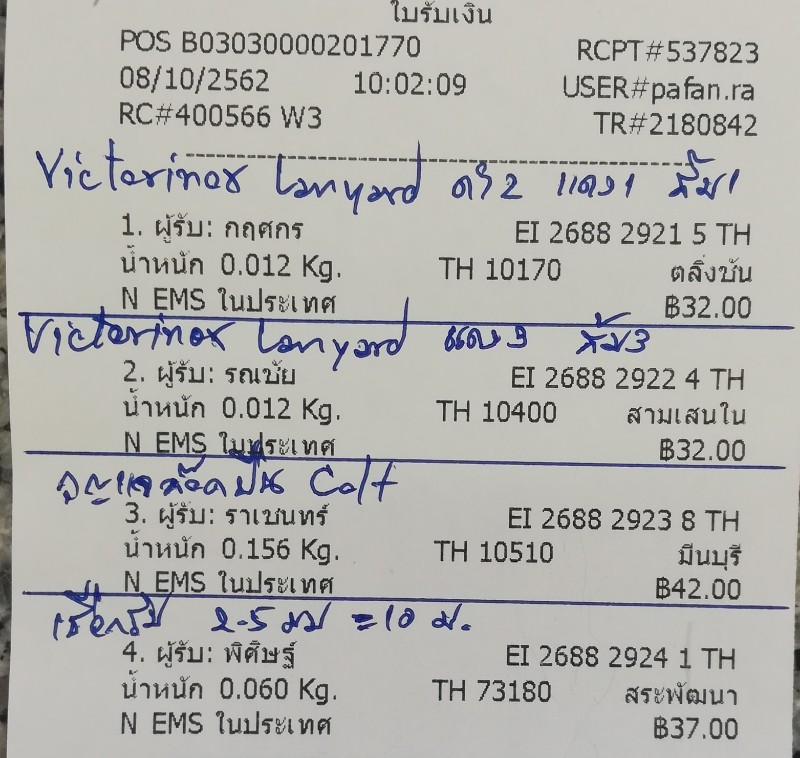 ใบรับเงิน
POS B03030000201770 RCPT#537823
08/10/2562 10:02:09 USER#pafan.ra
RC#400566 W3 TR#2180842
Victorinox Lanyard ดำ2 แดง1 ส้ม1
1. ผู้รับ: กฤศกร EI 2688 2921 5 TH
น้ำหนัก 0.012 Kg. TH 10170 ตลิ่งชัน
N EMS ในประเทศ ฿32.00
Victorinox Lanyard แดง3 ส้ม3
2. ผู้รับ: รณชัย EI 2688 2922 4 TH
น้ำหนัก 0.012 Kg. TH 10400 สามเสนใน
N EMS ในประเทศ ฿32.00
กุญแจล๊อคปืน Colt
3. ผู้รับ: ราเชนทร์ EI 2688 2923 8 TH
น้ำหนัก 0.156 Kg. TH 10510 มีนบุรี
N EMS ในประเทศ ฿42.00
เชือกร่ม 2.5 มม = 10 ม.
4. ผู้รับ: พิศิษฐ์ EI 2688 2924 1 TH
น้ำหนัก 0.060 Kg. TH 73180 สระพัฒนา
N EMS ในประเทศ ฿37.00